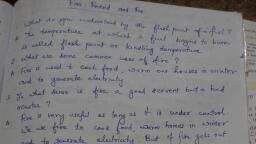 Fire: Friend and Foe
1. What do you understand by the flash point of a fuel?
A. The temperature at which a fuel begins to burn
is called flash point or kindling temperature.
2. What are some common uses of fire?
A. Fire is used to cook food, warm our houses in winter
and to generate electricity
3. In what sense is fire a good servant but a bad
master?
A. Fire is very useful as long as it is under control.
We use fire to cook food, warm homes in winter
and to generate electricity. But if fire gets out